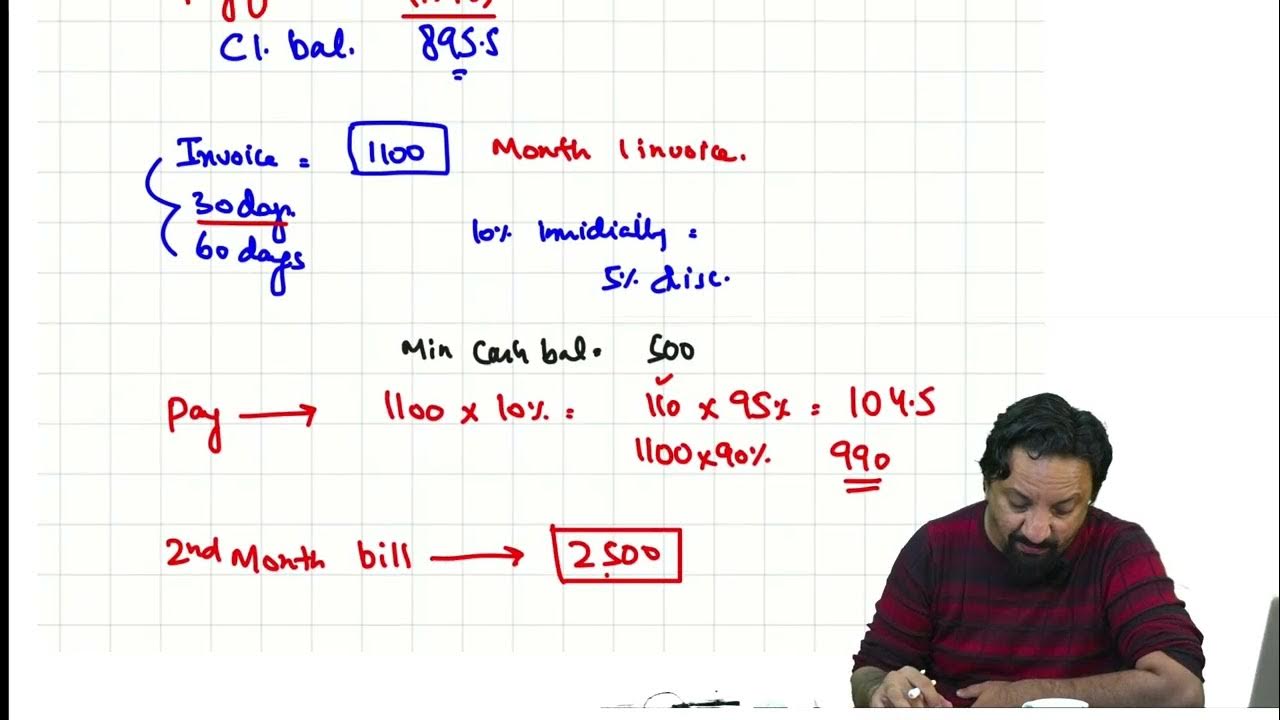 Cl. bal. 895.5
Invoice = 1100 Month 1 invoice.
30 days.
60 days
10% Imidially =
5% disc.
Min Cash bal. 500
Pay → 1100 x 10% = 110 x 95% = 104.5
1100 x 90% 990
2nd Month bill → 2500